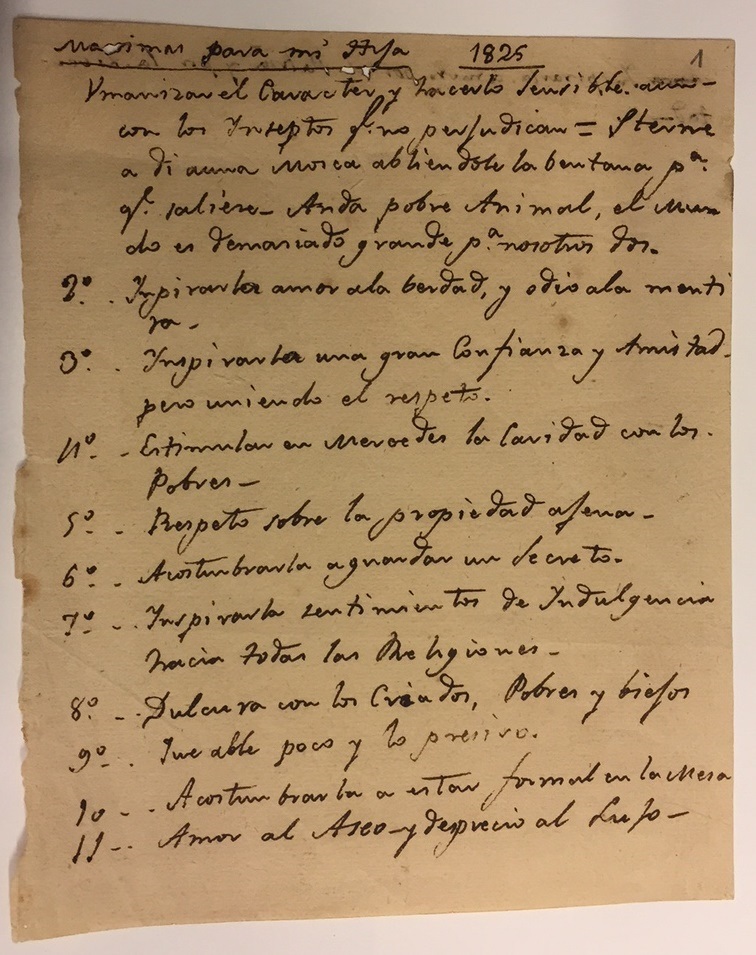 Maximas para mi Hija 1825 1
Vmanizar él Caracter, y hacerlo sensible aun
con los Inseptos q.e no perjudican = Sterne
a di auna Mosca abliendole la bentana p.a
q.e saliére - Anda pobre Animal, el Mun
do es demasiado grande p.a nosotros dos.
2º. Inpirarla amor ala berdad, y odio ala menti
ra -
3º. Inspirarla una gran Confianza y Amistad
pero uniendo el respeto.
4º - Estimular en Mercedes la Caridad con los
Pobres -
5º - Respeto sobre la propiedad ajena -
6º - Acostumbrarla aguardar un secreto.
7º - Inspirarla sentimientos de Indulgencia
hacia todas las Religiones -
8º - Dulcura con los Criados, Pobres y biejos
9º. Que able poco y lo presiso.
10 - Acostumbrarla a estar formal en la Mesa
11 - Amor al Aseo y desprecio al Lujo -